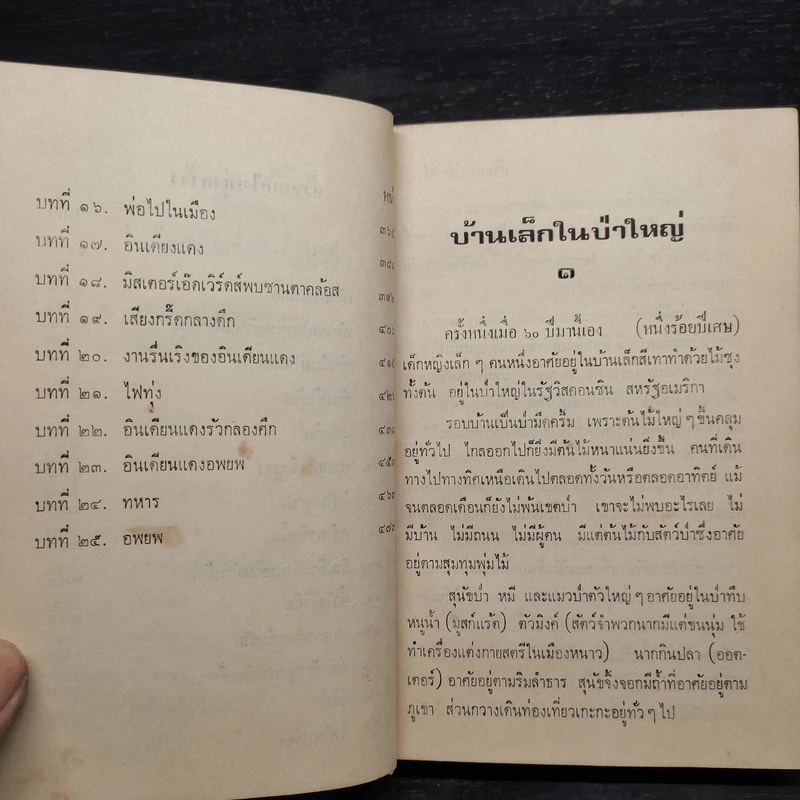 บทที่ ๑๖. พ่อไปในเมือง
บทที่ ๑๗. อินเดียงแดง ๓๘๑
บทที่ ๑๘. มิสเตอร์เอ๊ดเวิร์ดส์พบซานตาคล้อส
บทที่ ๑๙. เสียงกรี๊ดกลางดึก
บทที่ ๒๐. งานรื่นเริงของอินเดียนแดง
บทที่ ๒๑. ไฟทุ่ง
บทที่ ๒๒. อินเดียนแดงรัวกลองศึก
บทที่ ๒๓. อินเดียนแดงอพยพ
บทที่ ๒๔. ทหาร
บทที่ ๒๕. อพยพ
บ้านเล็กในป่าใหญ่
๑
ครั้งหนึ่งเมื่อ ๖๐ ปีมานี้เอง (หนึ่งร้อยปีเศษ)
เด็กหญิงเล็ก ๆ คนหนึ่งอาศัยอยู่ในบ้านเล็กสีเทาทำด้วยไม้ซุง
ทั้งต้น อยู่ในป่าใหญ่ในรัฐวิสคอนซิน สหรัฐอเมริกา
รอบบ้านเป็นป่ามืดครึ้ม เพราะต้นไม้ใหญ่ ๆ ขึ้นคลุม
อยู่ทั่วไป ไกลออกไปก็ยิ่งมีต้นไม้หนาแน่นยิ่งขึ้น คนที่เดิน
ทางไปทางทิศเหนือเดินไปตลอดทั้งวันหรือตลอดอาทิตย์ แม้
จนตลอดเดือนก็ยังไม่พ้นเขตป่า เขาจะไม่พบอะไรเลย ไม่
มีบ้าน ไม่มีถนน ไม่มีผู้คน มีแต่ต้นไม้กับสัตว์ป่าซึ่งอาศัย
อยู่ตามสุมทุมพุ่มไม้
สุนัขป่า หมี และแมวป่าตัวใหญ่ ๆ อาศัยอยู่ในป่าทึบ
หนูน้ำ (มู้สก์แร้ต) ตัวมิงค์ (สัตว์จำพวกนากมีแต่ขนนุ่ม ใช้
ทำเครื่องแต่งกายสตรีในเมืองหนาว) นากกินปลา (ออต-
เตอร์) อาศัยอยู่ตามริมลำธาร สุนัขจิ้งจอกมีถ้ำที่อาศัยอยู่ตาม
ภูเขา ส่วนกวางเดินท่องเที่ยวเกะกะอยู่ทั่ว ๆ ไป